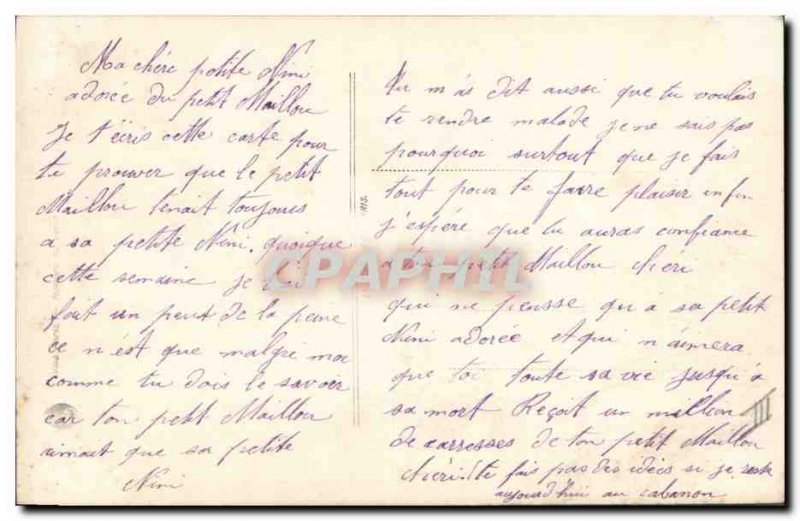 Ma chère petite Nini
adorée du petit Maillou
Je t'écris cette carte pour
te prouver que le petit
Maillou tenait toujours
a sa petite Nini. quoique
cette semaine je t'ai
fait un peut de la peine
ce n'ést que malgré moi
comme tu dois le savoir
car ton petit Maillou
aimait que sa petite
Nini
Tu m'ás dit aussi que tu voulais
te rendre malade je ne sais pas
pourquoi surtout que je fais
tout pour te faire plaisir enfin
j'espère que tu auras confiance
a ton petit Maillou chéri
qui ne pensse qu'a sa petit
Nini adorée et qui n'aimera
que toi toute sa vie jusqu'á
sa mort Reçoit un million
de carresses de ton petit Maillou
chéri. te fais pas des idées si je reste
aujourd'hui au cabanon
III
CPAPHIL